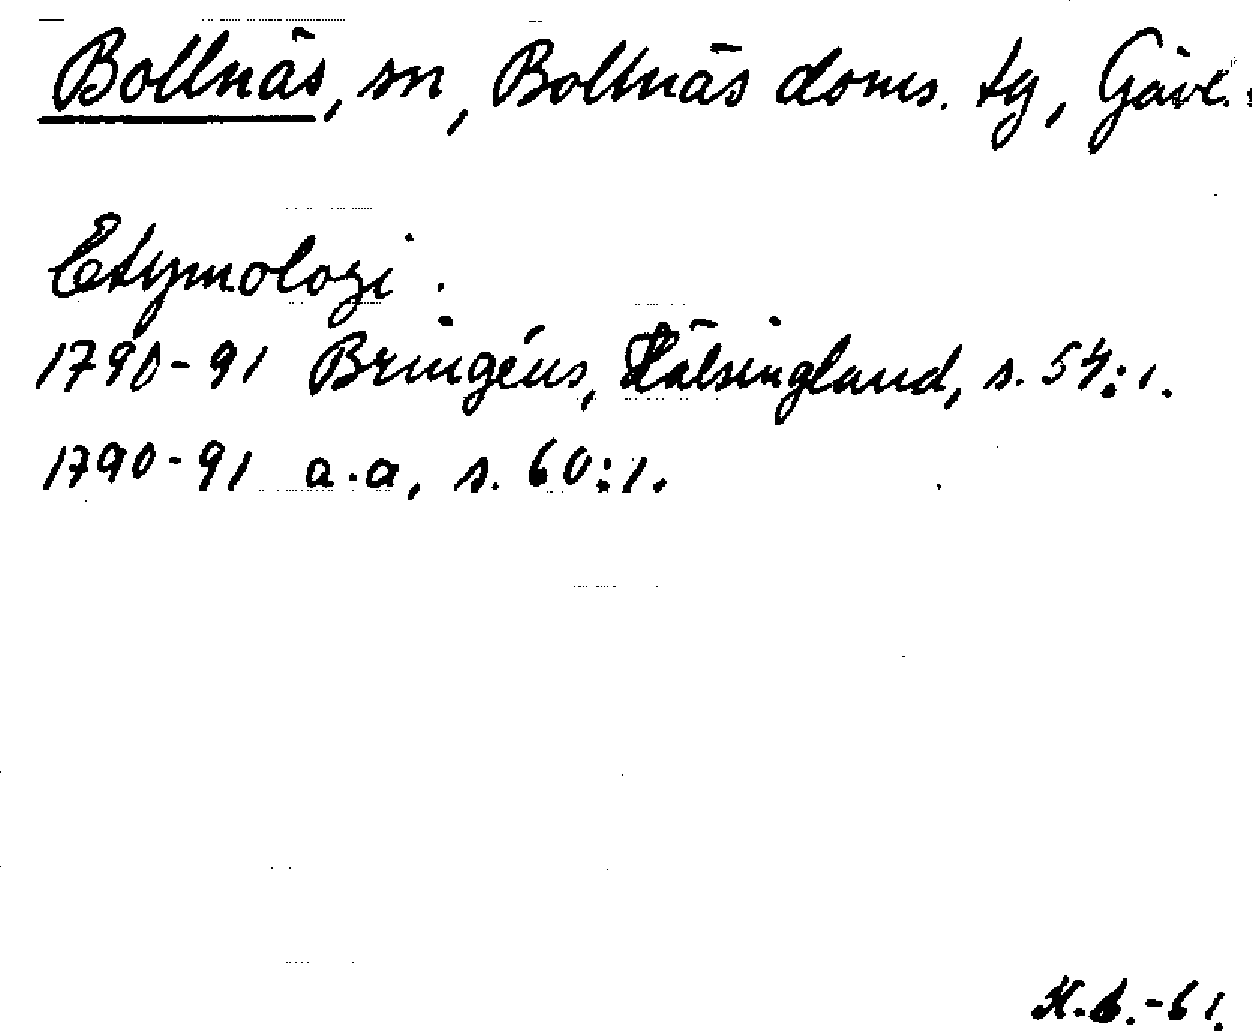 Bollnäs, sn, Bollnäs doms. tg, Gävl.
Etymologi.
1790-91 Bringéus, Hälsingland, s. 54:1.
1790-91 a.a, s. 60:1.
H.B.-61.